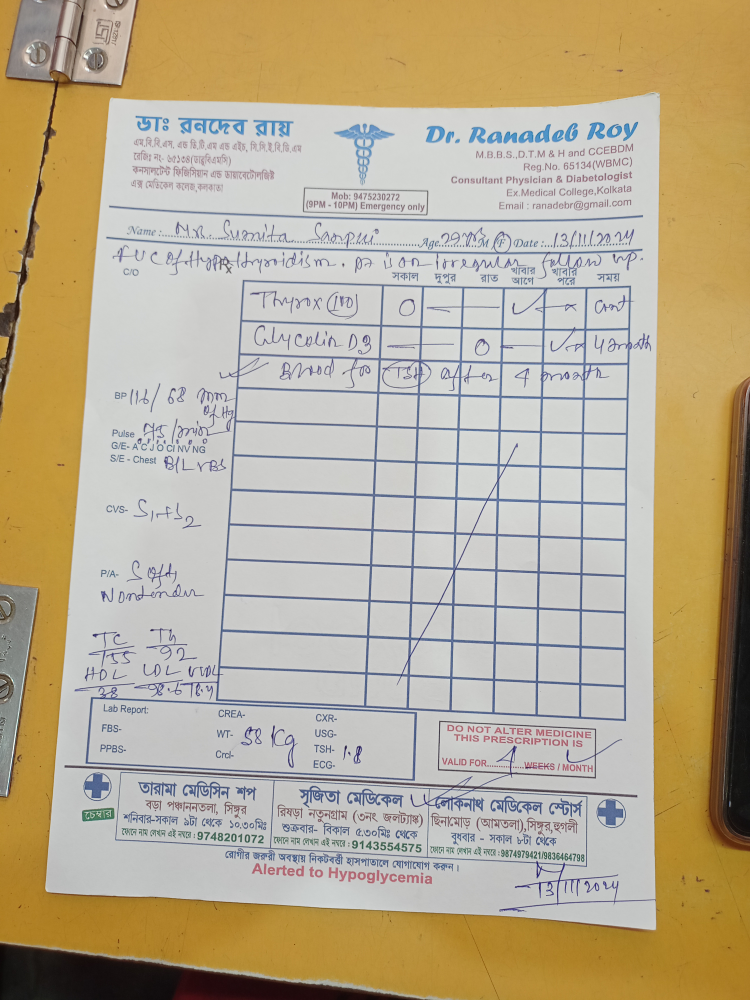 ডাঃ রনদেব রায়
এম.বি.বি.এস, এন্ড ডি.টি.এম এন্ড এইচ, সি.সি.ই.বি.ডি.এম
রেজিঃ নং- ৬৫১৩৪(ডাব্লুবিএমসি)
কনসালটেন্ট ফিজিসিয়ান এন্ড ডায়াবেটোলজিষ্ট
এক্স মেডিকেল কলেজ,কলকাতা
Dr. Ranadeb Roy
M.B.B.S.,D.T.M & H and CCEBDM
Reg.No. 65134(WBMC)
Consultant Physician & Diabetologist
Ex.Medical College,Kolkata
Email : ranadebr@gmail.com
Mob: 9475230272
(9PM - 10PM) Emergency only
Name: Sumita Age 29 M F Date: 13/11/2024
FUC of Hypothyroidism. pt is on irregular follow up.
C/O
সকাল দুপুর রাত খাবার আগে খাবার পরে সময়
Thyrox (100) O — — ✓ x cont
D3 — — O — ✓ x 4 month
Blood for TSH after 4 month
BP 116/68 mm of Hg
Pulse 75/min
G/E- A C J O Cl NV NG
S/E - Chest B/L VBS
CVS- S1+S2
P/A- Soft, Nontender
TC TG
155 92
HDL LDL VLDL
38 98.6 18.4
Lab Report:
FBS-
PPBS-
CREA-
WT- 58 Kg
Crcl-
CXR-
USG-
TSH- 1.8
ECG-
DO NOT ALTER MEDICINE
THIS PRESCRIPTION IS
VALID FOR 4 WEEKS / MONTH
চেম্বার
তারামা মেডিসিন শপ
বড়া পঞ্চাননতলা, সিঙ্গুর
শনিবার-সকাল ৯টা থেকে ১০.৩০মিঃ
ফোনে নাম লেখান এই নম্বরে : 9748201072
সৃজিতা মেডিকেল
রিষড়া নতুনগ্রাম (৩নং জলট্যাঙ্ক)
শুক্রবার- বিকাল ৫.৩০মিঃ থেকে
ফোনে নাম লেখান এই নম্বরে : 9143554575
লোকনাথ মেডিকেল স্টোর্স
ছিনামোড় (আমতলা),সিঙ্গুর,হুগলী
বুধবার - সকাল ৮টা থেকে
ফোনে নাম লেখান এই নম্বরে : 9874979421/9836464798
রোগীর জরুরী অবস্থায় নিকটবর্তী হাসপাতালে যোগাযোগ করুন।
Alerted to Hypoglycemia
13/11/2024